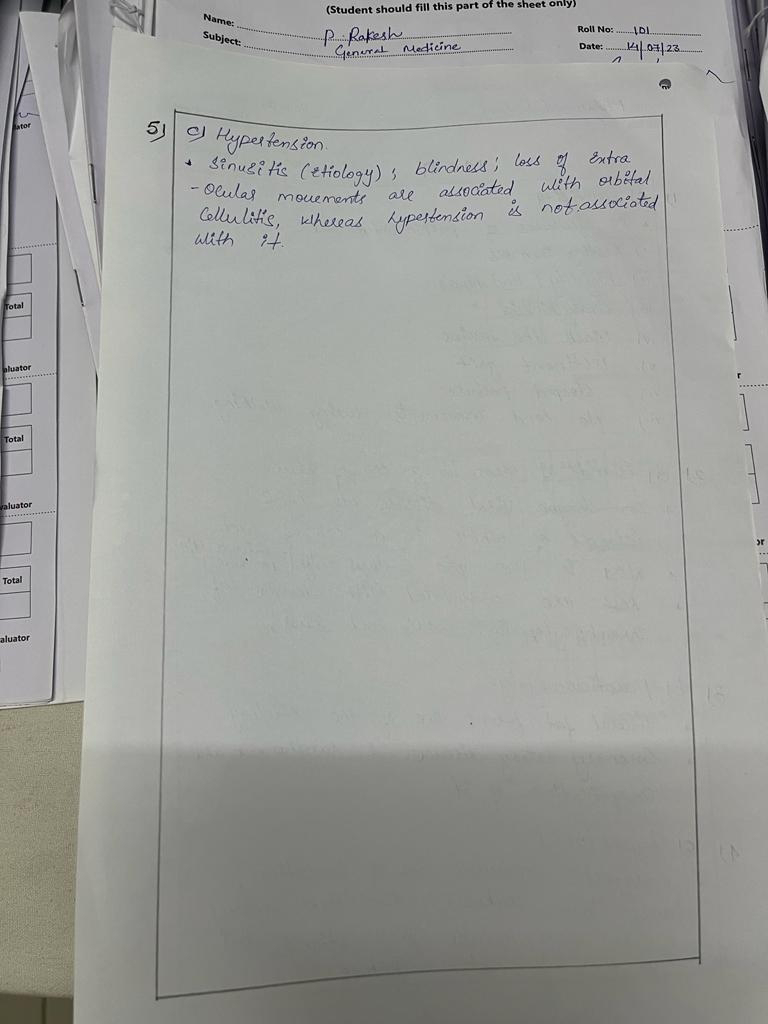 (Student should fill this part of the sheet only)
Name: P. Rakesh
Roll No: 101
Subject: General Medicine
Date: 14/07/23
5) c) Hypertension.
• Sinusitis (Etiology) ; blindness ; loss of Extra
- Ocular movements are associated with orbital
Cellulitis, whereas hypertension is not associated
with it.
Total
aluator
Total
valuator
Total
aluator